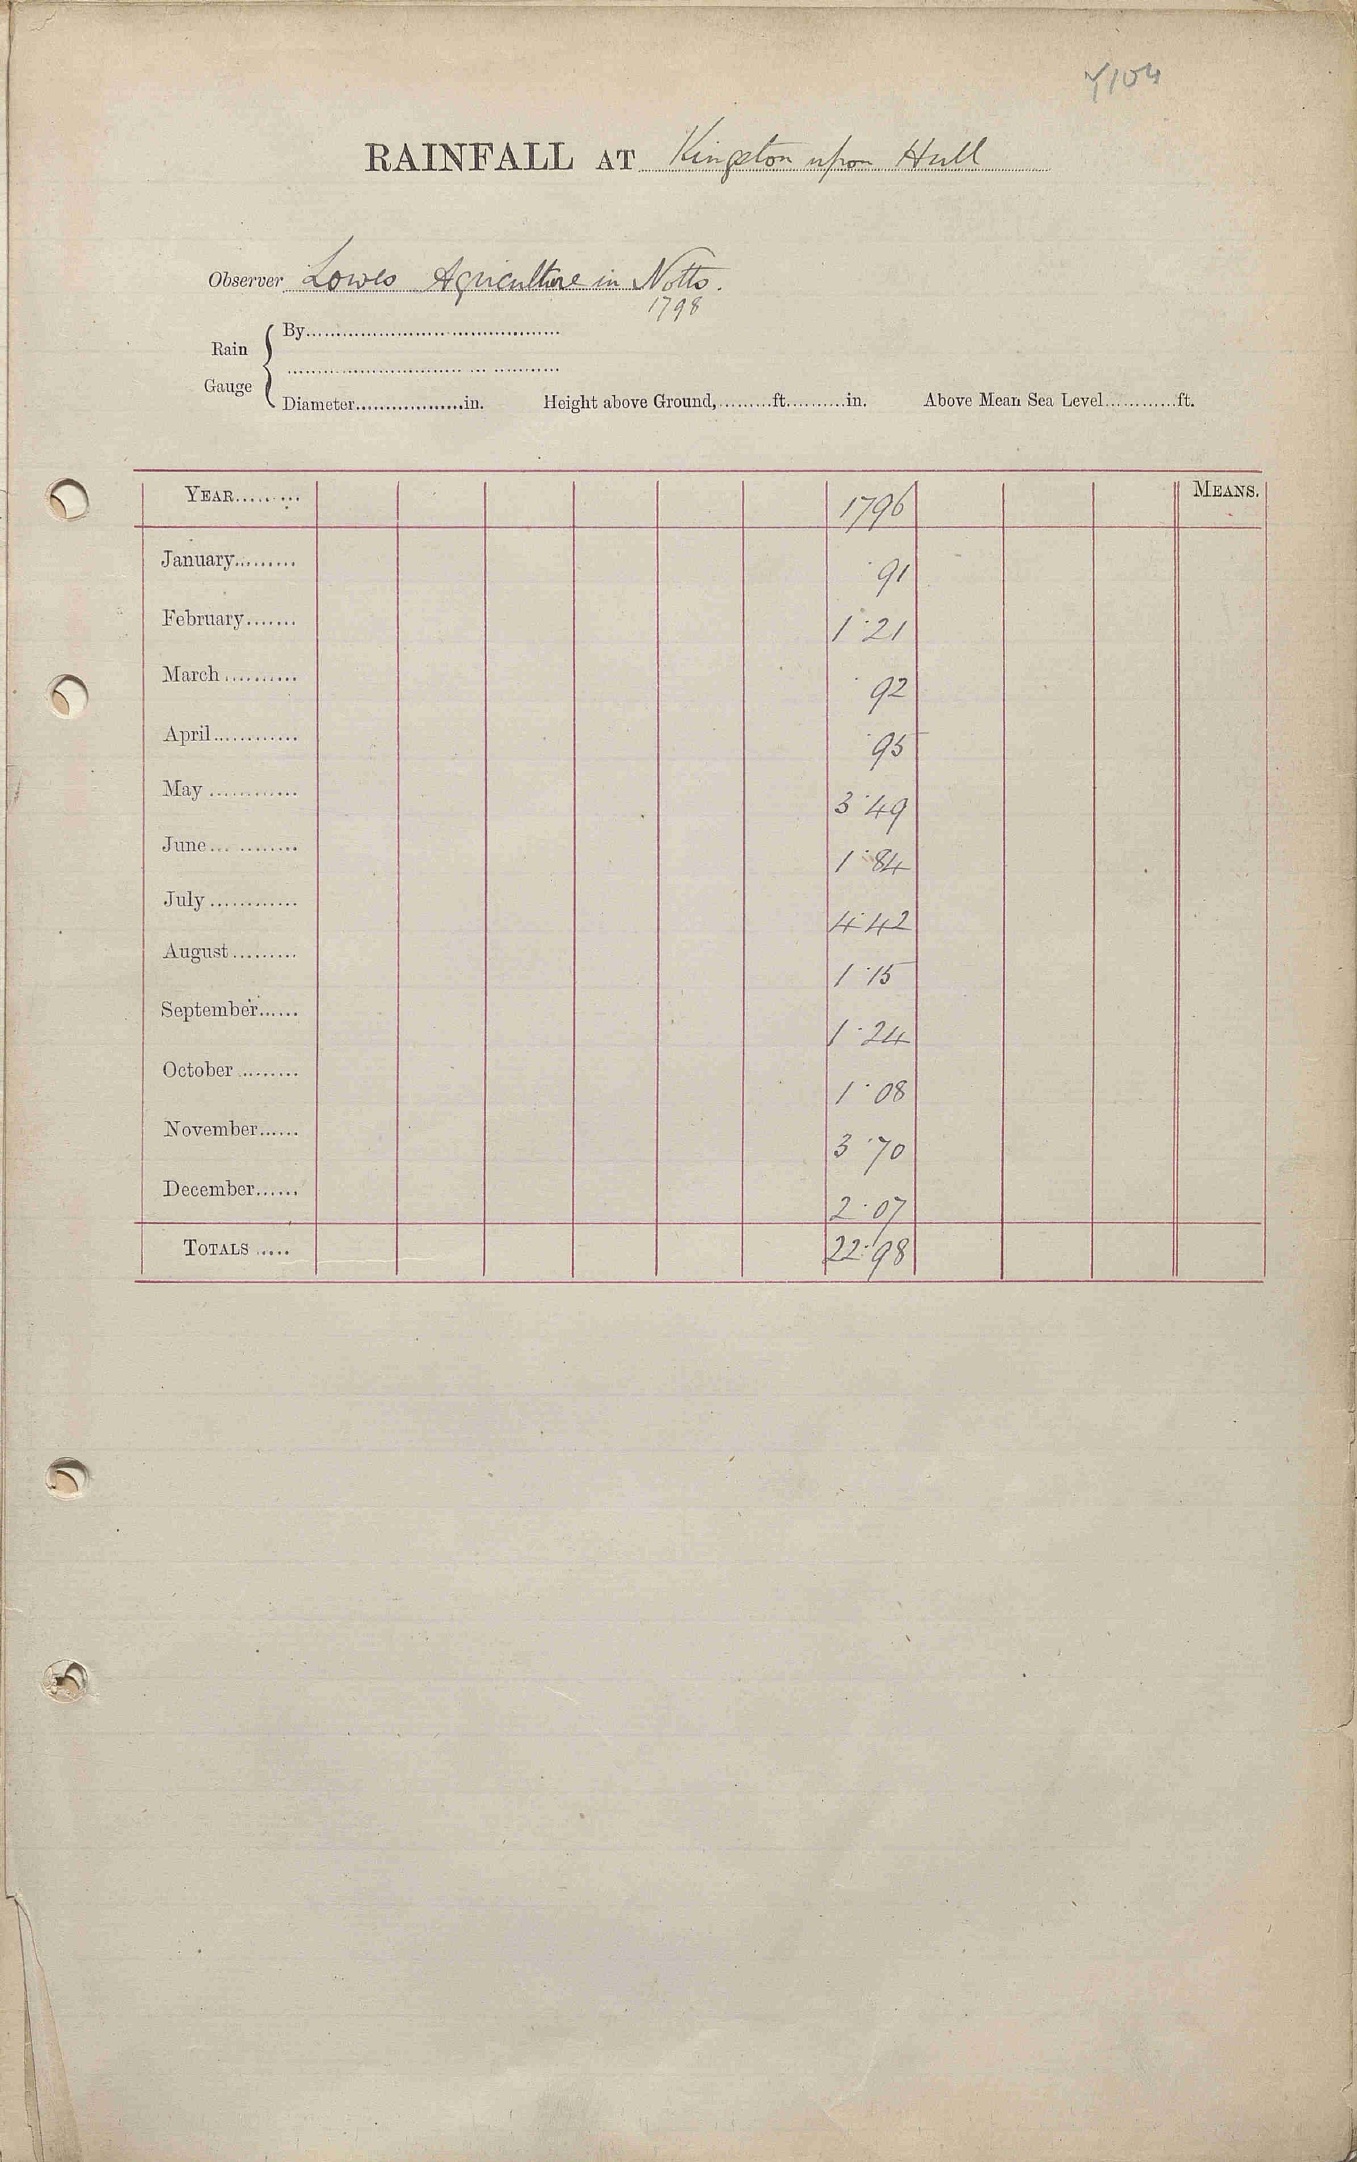 Y104
RAINFALL AT Kingston upon Hull
Observer Lowes Agriculture in Notts.
1798
Rain Gauge
By
Diameter in. Height above Ground, ft. in. Above Mean Sea Level ft.
YEAR 1796 MEANS.
January ·91
February 1·21
March ·92
April ·95
May 3·49
June 1·84
July 4·42
August 1·15
September 1·24
October 1·08
November 3·70
December 2·07
TOTALS 22·98